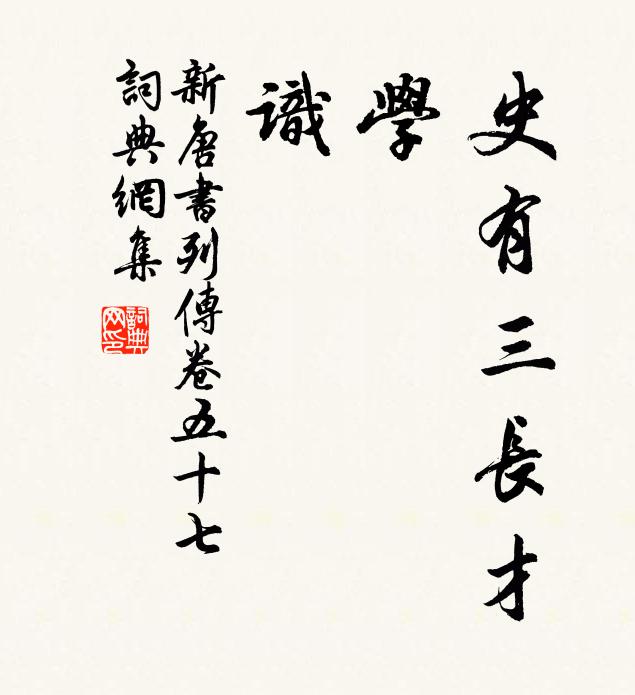 史有三長才
學
識
新唐書列傳卷五十七
詞典網集
詞典
网印